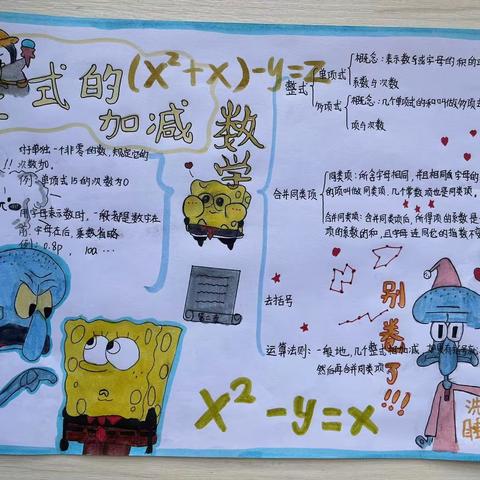 整式的
加减
(x²+x)-y=z
数学
对单独一个非零的数,规定它的
次数为0.
例:单项式15的次数为0
用字母表示数时,一般都是数字在
前,字母在后,乘数省略
例:0.8p, 10a...
整式
单项式
概念:表示数与或字母的积的
系数与次数
多项式
概念:几个单项式的和叫做多项
项与次数
合并同类项
同类项:所含字母相同,并且相同字母的
的项叫做同类项,几个常数项也是同类项。
合并同类项:合并同类项后,所得项的系数是
项的系数的和,且字母连同它的指数不
去括号
运算法则:一般地,几个整式相加减
然后再合并同类项
第二章
别卷了!!!
x²-y=x
洗
睡